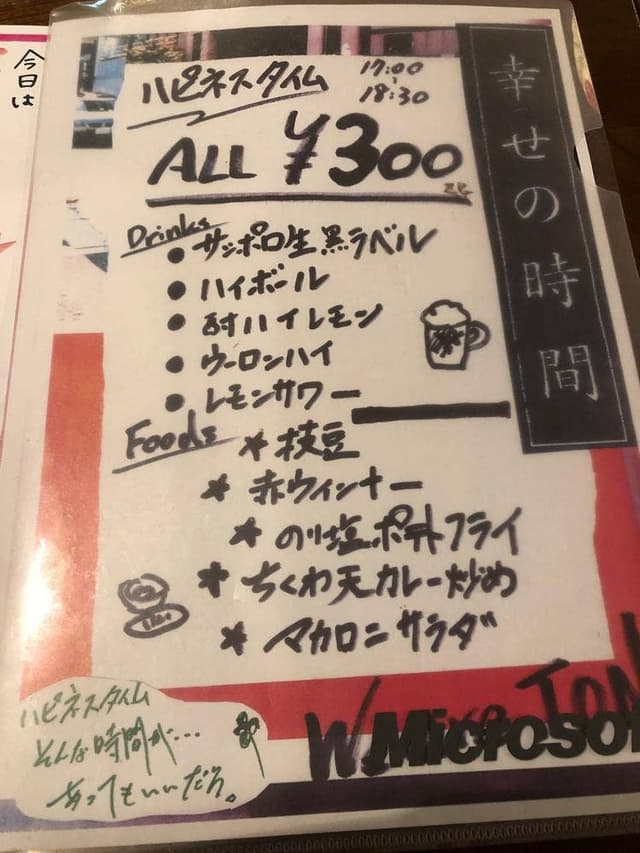 今日は
ハピネスタイム 17:00
18:30
ALL ¥300
幸せの時間
Drinks
● サッポロ生黒ラベル
● ハイボール
● 酎ハイレモン
● ウーロンハイ
● レモンサワー
Foods
* 枝豆
* 赤ウィンナー
* のり塩ポテトフライ
* ちくわ天カレー炒め
* マカロニサラダ
ハピネスタイム
そんな時間が…
あってもいいだろ。
Microso